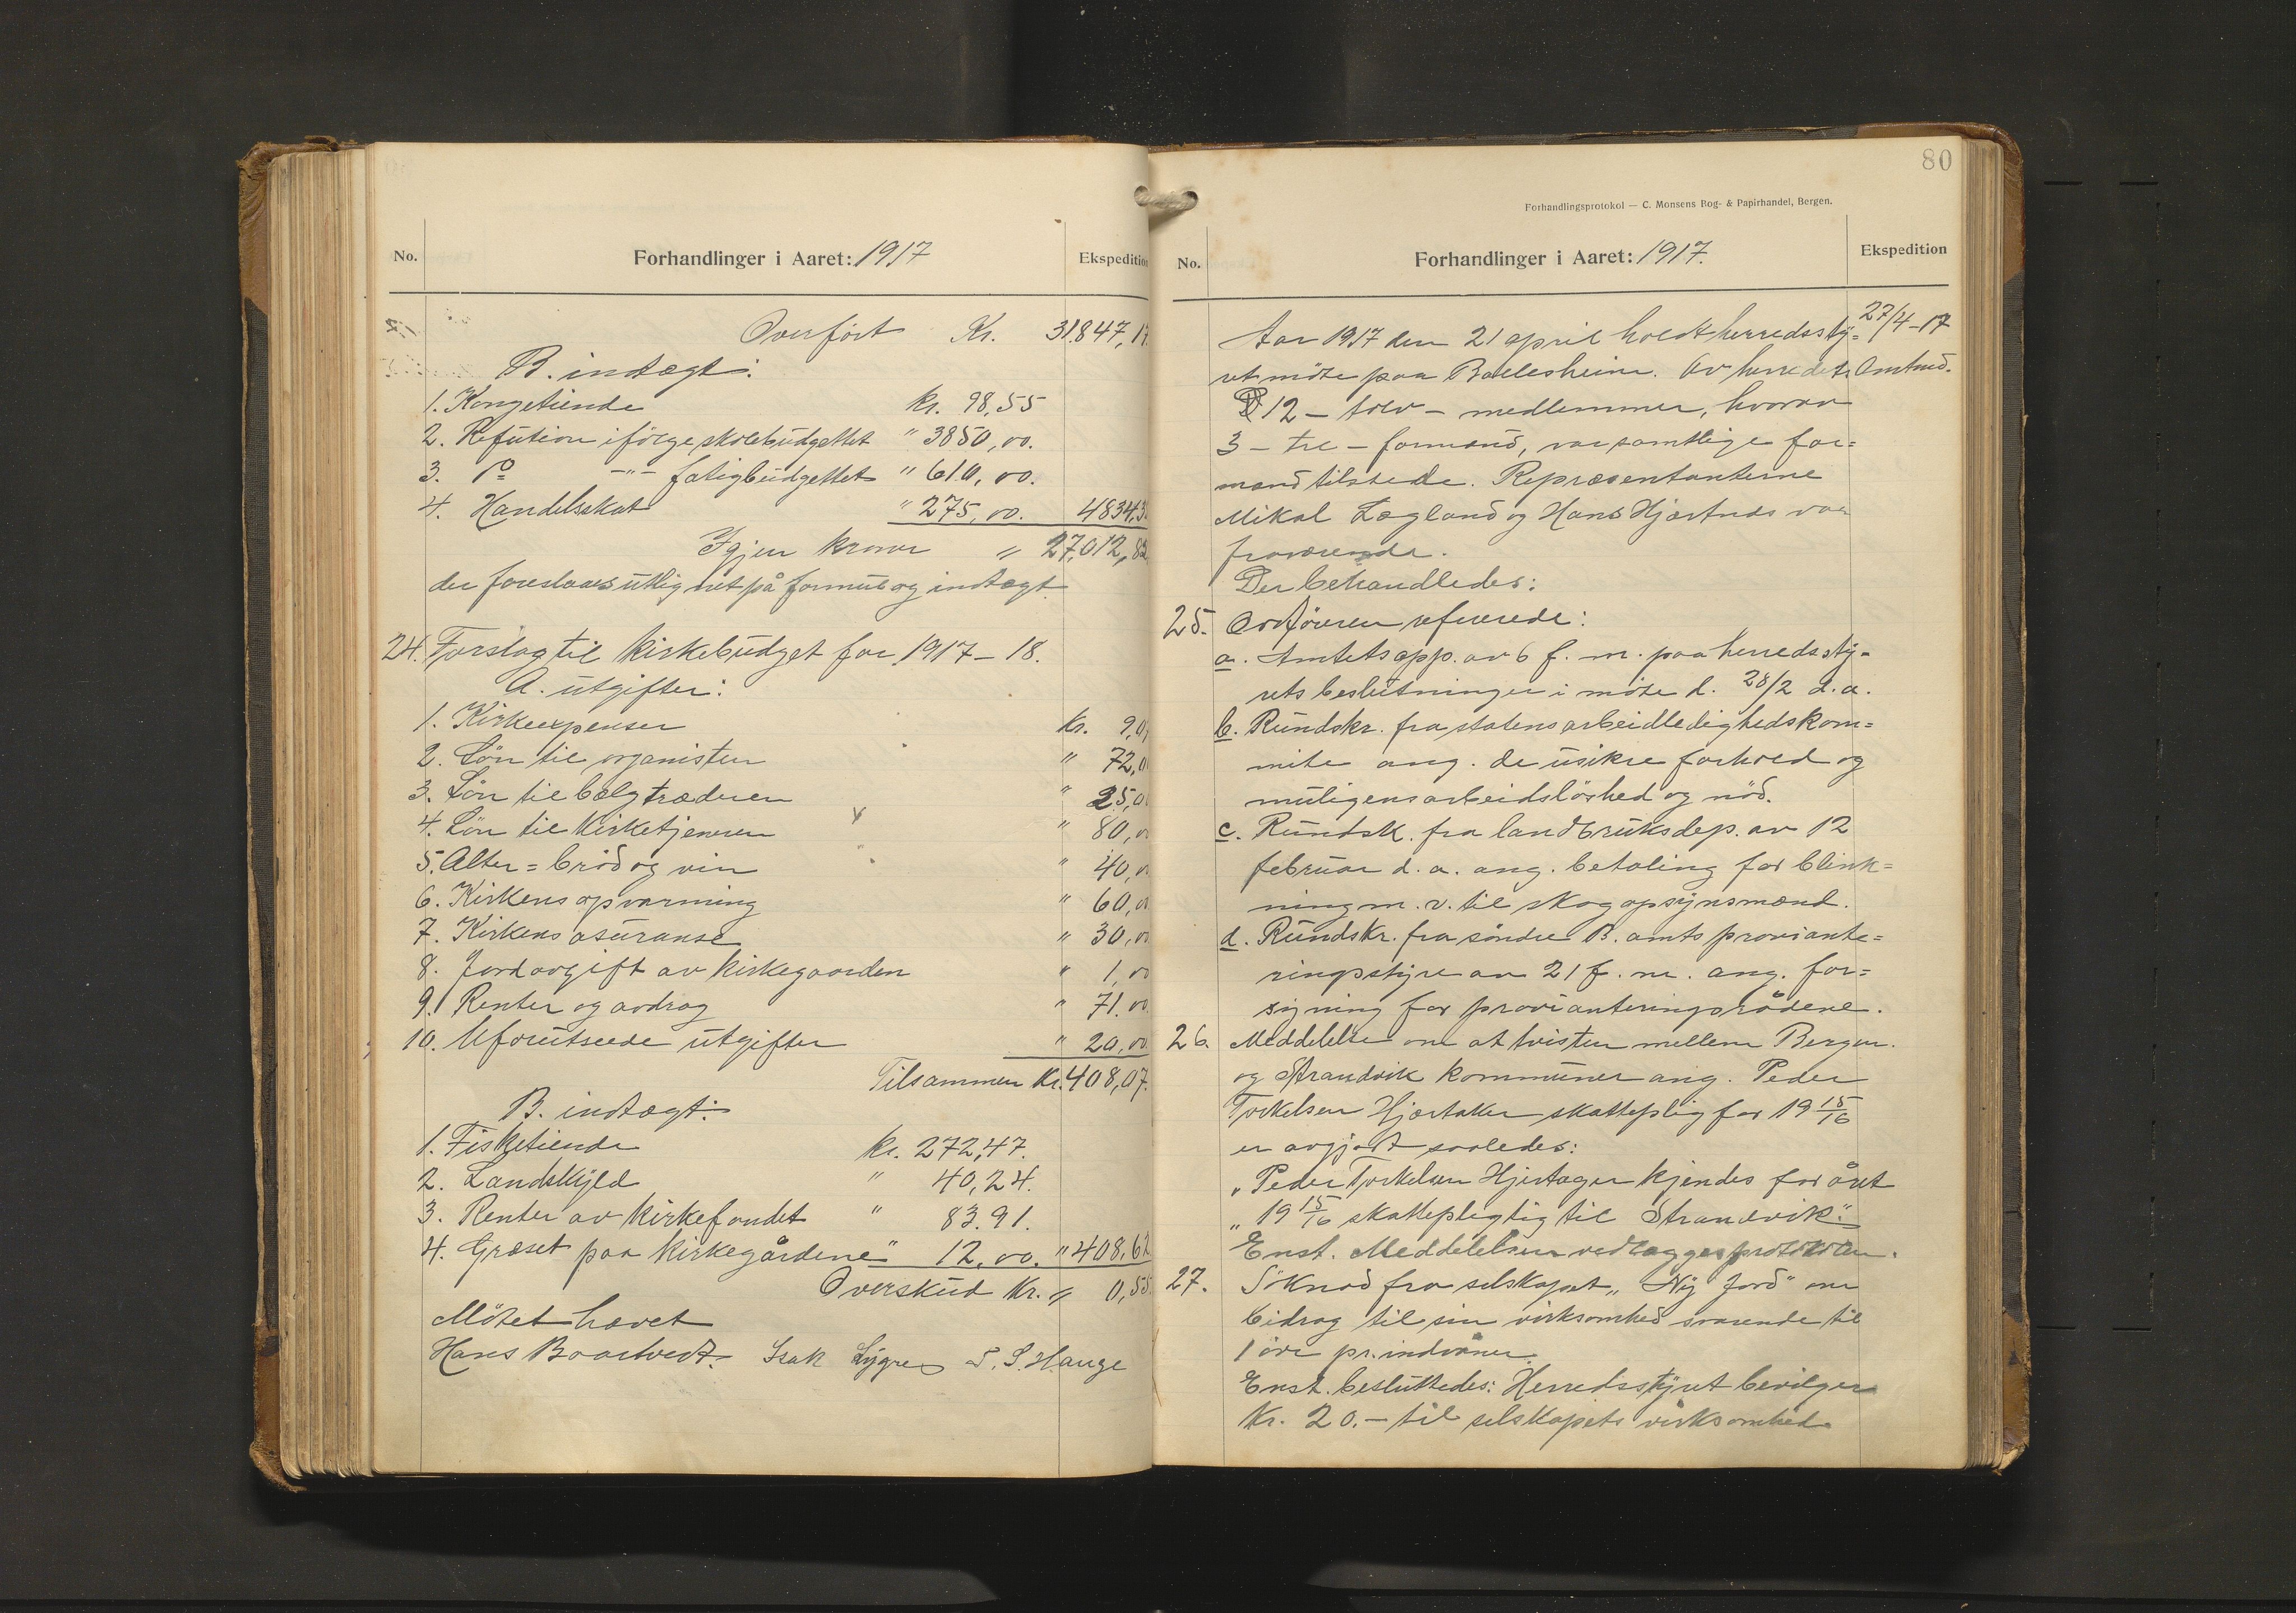 No.
Forhandlinger i Aaret: 1917
Ekspedition
Overført Kr. 31847,17
B. indtægt:
1. Kongetiende kr. 98,55
2. Refution ifölge skolebudgettet " 3850,00.
3. Do —"— fatigbudgettet " 610,00.
4. Handelsskat " 275,00. 4834,3
Igjen kroner " 27,012,82
der foreslaaes utlignet på formue og indtægt
24. Forslag til kirkebudget for 1917–18.
A. utgifter:
1. Kirkeexpenser Kr. 9,0
2. Lön til organisten " 72,0
3. Lön til bælgtræderen " 25,0
4. Lön til Kirketjeneren " 80,0
5. Alter=bröd og vin " 40,0
6. Kirkens opvarming " 60,0
7. Kirkens asuranse " 30,0
8. Jordavgift av kirkegaarden " 1,00
9. Renter og avdrag " 71.00
10. Uforutseede utgifter " 20,00
Tilsammen Kr. 408,07.
B. indtægt:
1. Fisketiende kr. 272,47.
2. Landskyld " 40,24.
3. Renter av kirkefondet " 83.91.
4. Græset paa kirkegårdene " 12,00. " 408,62
Overskud Kr. " 0,55
Mötet hævet
Hans Baartvedt. Isak Lygre S. S. Hauge
80
Forhandlingsprotokol — C. Monsens Bog- & Papirhandel, Bergen.
No.
Forhandlinger i Aaret: 1917.
Ekspedition
Aar 1917 den 21 april holdt herredssty= 27/4–17
ret möte paa Ballesheim. Av herredets Amtmd.
12 – tolv – medlemmer, hvorav
3 – tre – formænd, var samtlige for=
mænd tilstede. Repræsentanterne
Mikal Lægland og Hans Hjartnes var
fraværende.
Der behandledes:
25. Ordföreren refererede:
a. Amtets app. av 6 f. m. paa herredssty=
rets beslutninger i möte d. 28/2 d.a.
b. Rundskr. fra statens arbeidledighedskom=
mite ang. de usikre forhold og
muligens arbeidslöshed og nöd.
c. Rundsk. fra landbruksdep. av 12
februar d.a. ang. betaling for blink=
ning m.v. til skogopsynsmænd.
d. Rundskr. fra söndre B. amts proviante=
ringsstyre av 21 f. m. ang. for=
syning for provianteringsrådene.
26. Meddelelse om at tvisten mellem Bergen
og Strandvik kommuner ang. Peder
Torkelsen Hjartaker skatteplig for 19 15/16
er avgjort saaledes:
"Peder Torkelsen Hjertager kjendes for året
"19 15/16 skattepligtig til Strandvik."
Enst. Meddelelsen vedlægges protokolen.
27. Söknad fra selskapet "Ny Jord" om
bidrag til sin virksomhed svarende til
1 öre pr. indvåner.
Enst. besluttedes: Herredsstyret bevilger
Kr. 20.– til selskapets virksomhed